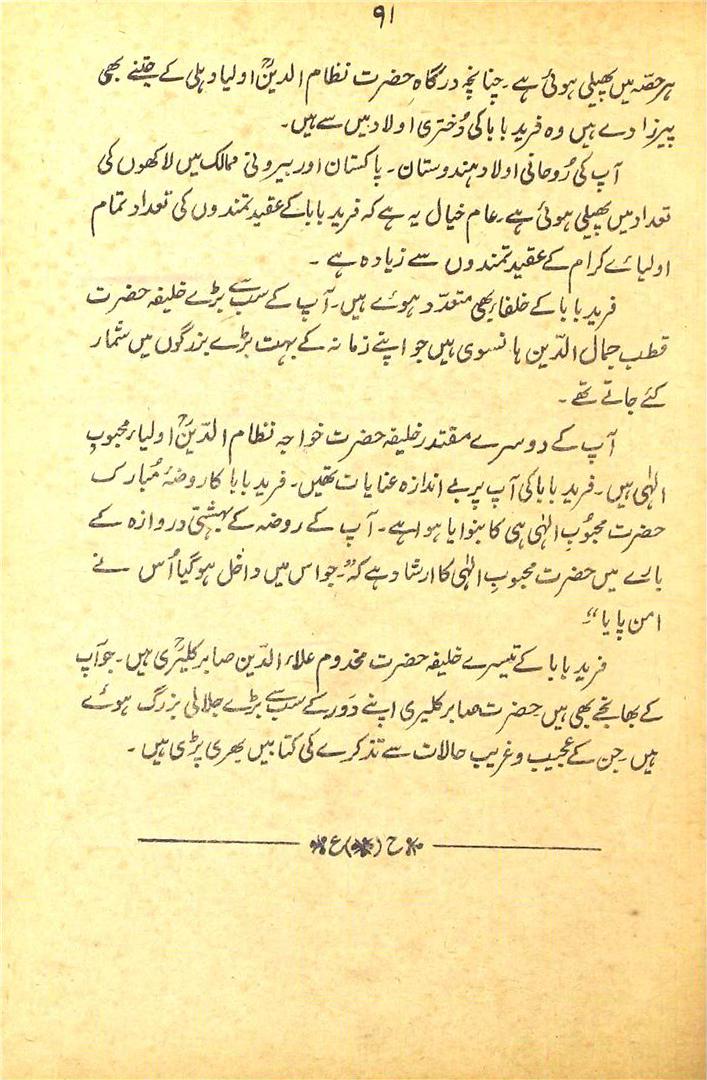 ۹۱
ہر حصّہ میں پھیلی ہوئی ہے۔ چنانچہ درگاہ حضرت نظام الدینؒ اولیا دہلی کے جتنے بھی
پیرزادے ہیں وہ فرید بابا کی دُختری اولاد میں سے ہیں۔
آپ کی رُوحانی اولاد ہندوستان۔ پاکستان اور بیرونی ممالک میں لاکھوں کی
تعداد میں پھیلی ہوئی ہے۔ عام خیال یہ ہے کہ فرید بابا کے عقیدتمندوں کی تعداد تمام
اولیائے کرام کے عقیدتمندوں سے زیادہ ہے ۔
فرید بابا کے خلفاء بھی متعدّد ہوئے ہیں۔ آپ کے سب سے بڑے خلیفہ حضرت
قطب جمال الدّین ہانسوی ہیں جو اپنے زمانہ کے بہت بڑے بزرگوں میں شمار
کئے جاتے تھے ۔
آپ کے دوسرے مقتدر خلیفہ حضرت خواجہ نظام الدّینؒ اولیاء محبوبِ
الٰہی ہیں۔ فرید بابا کی آپ پر بے اندازہ عنایات تھیں۔ فرید بابا کا روضۂ مُبارک
حضرت محبُوبِ الٰہی ہی کا بنوایا ہوا ہے۔ آپ کے روضہ کے بہشتی دروازہ کے
بارے میں حضرت محبوبِ الٰہی کا ارشاد ہے کہ "۔ جو اس میں داخل ہو گیا اُس نے
امن پایا"۔
فرید بابا کے تیسرے خلیفہ حضرت مخدوم علاء الدّین صابر کلیَریؒ ہیں۔ جو آپ
کے بھانجے بھی ہیں۔ حضرت صابر کلیری اپنے دَور کے سب سے بڑے جلالی بزرگ ہوئے
ہیں۔ جن کے عجیب و غریب حالات سے تذکرے کی کتابیں بھری پڑی ہیں ۔
ح(*)ع